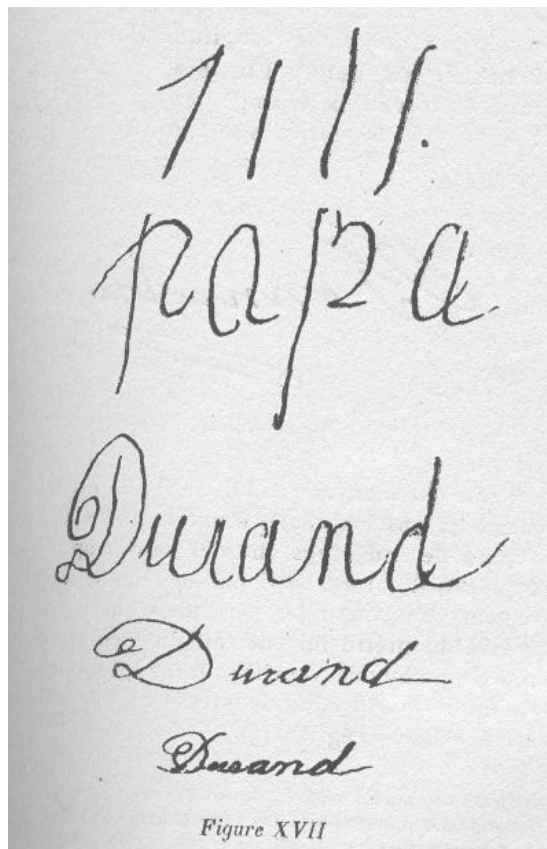 1111.
papa
Durand
Durand
Durand
Figure XVII